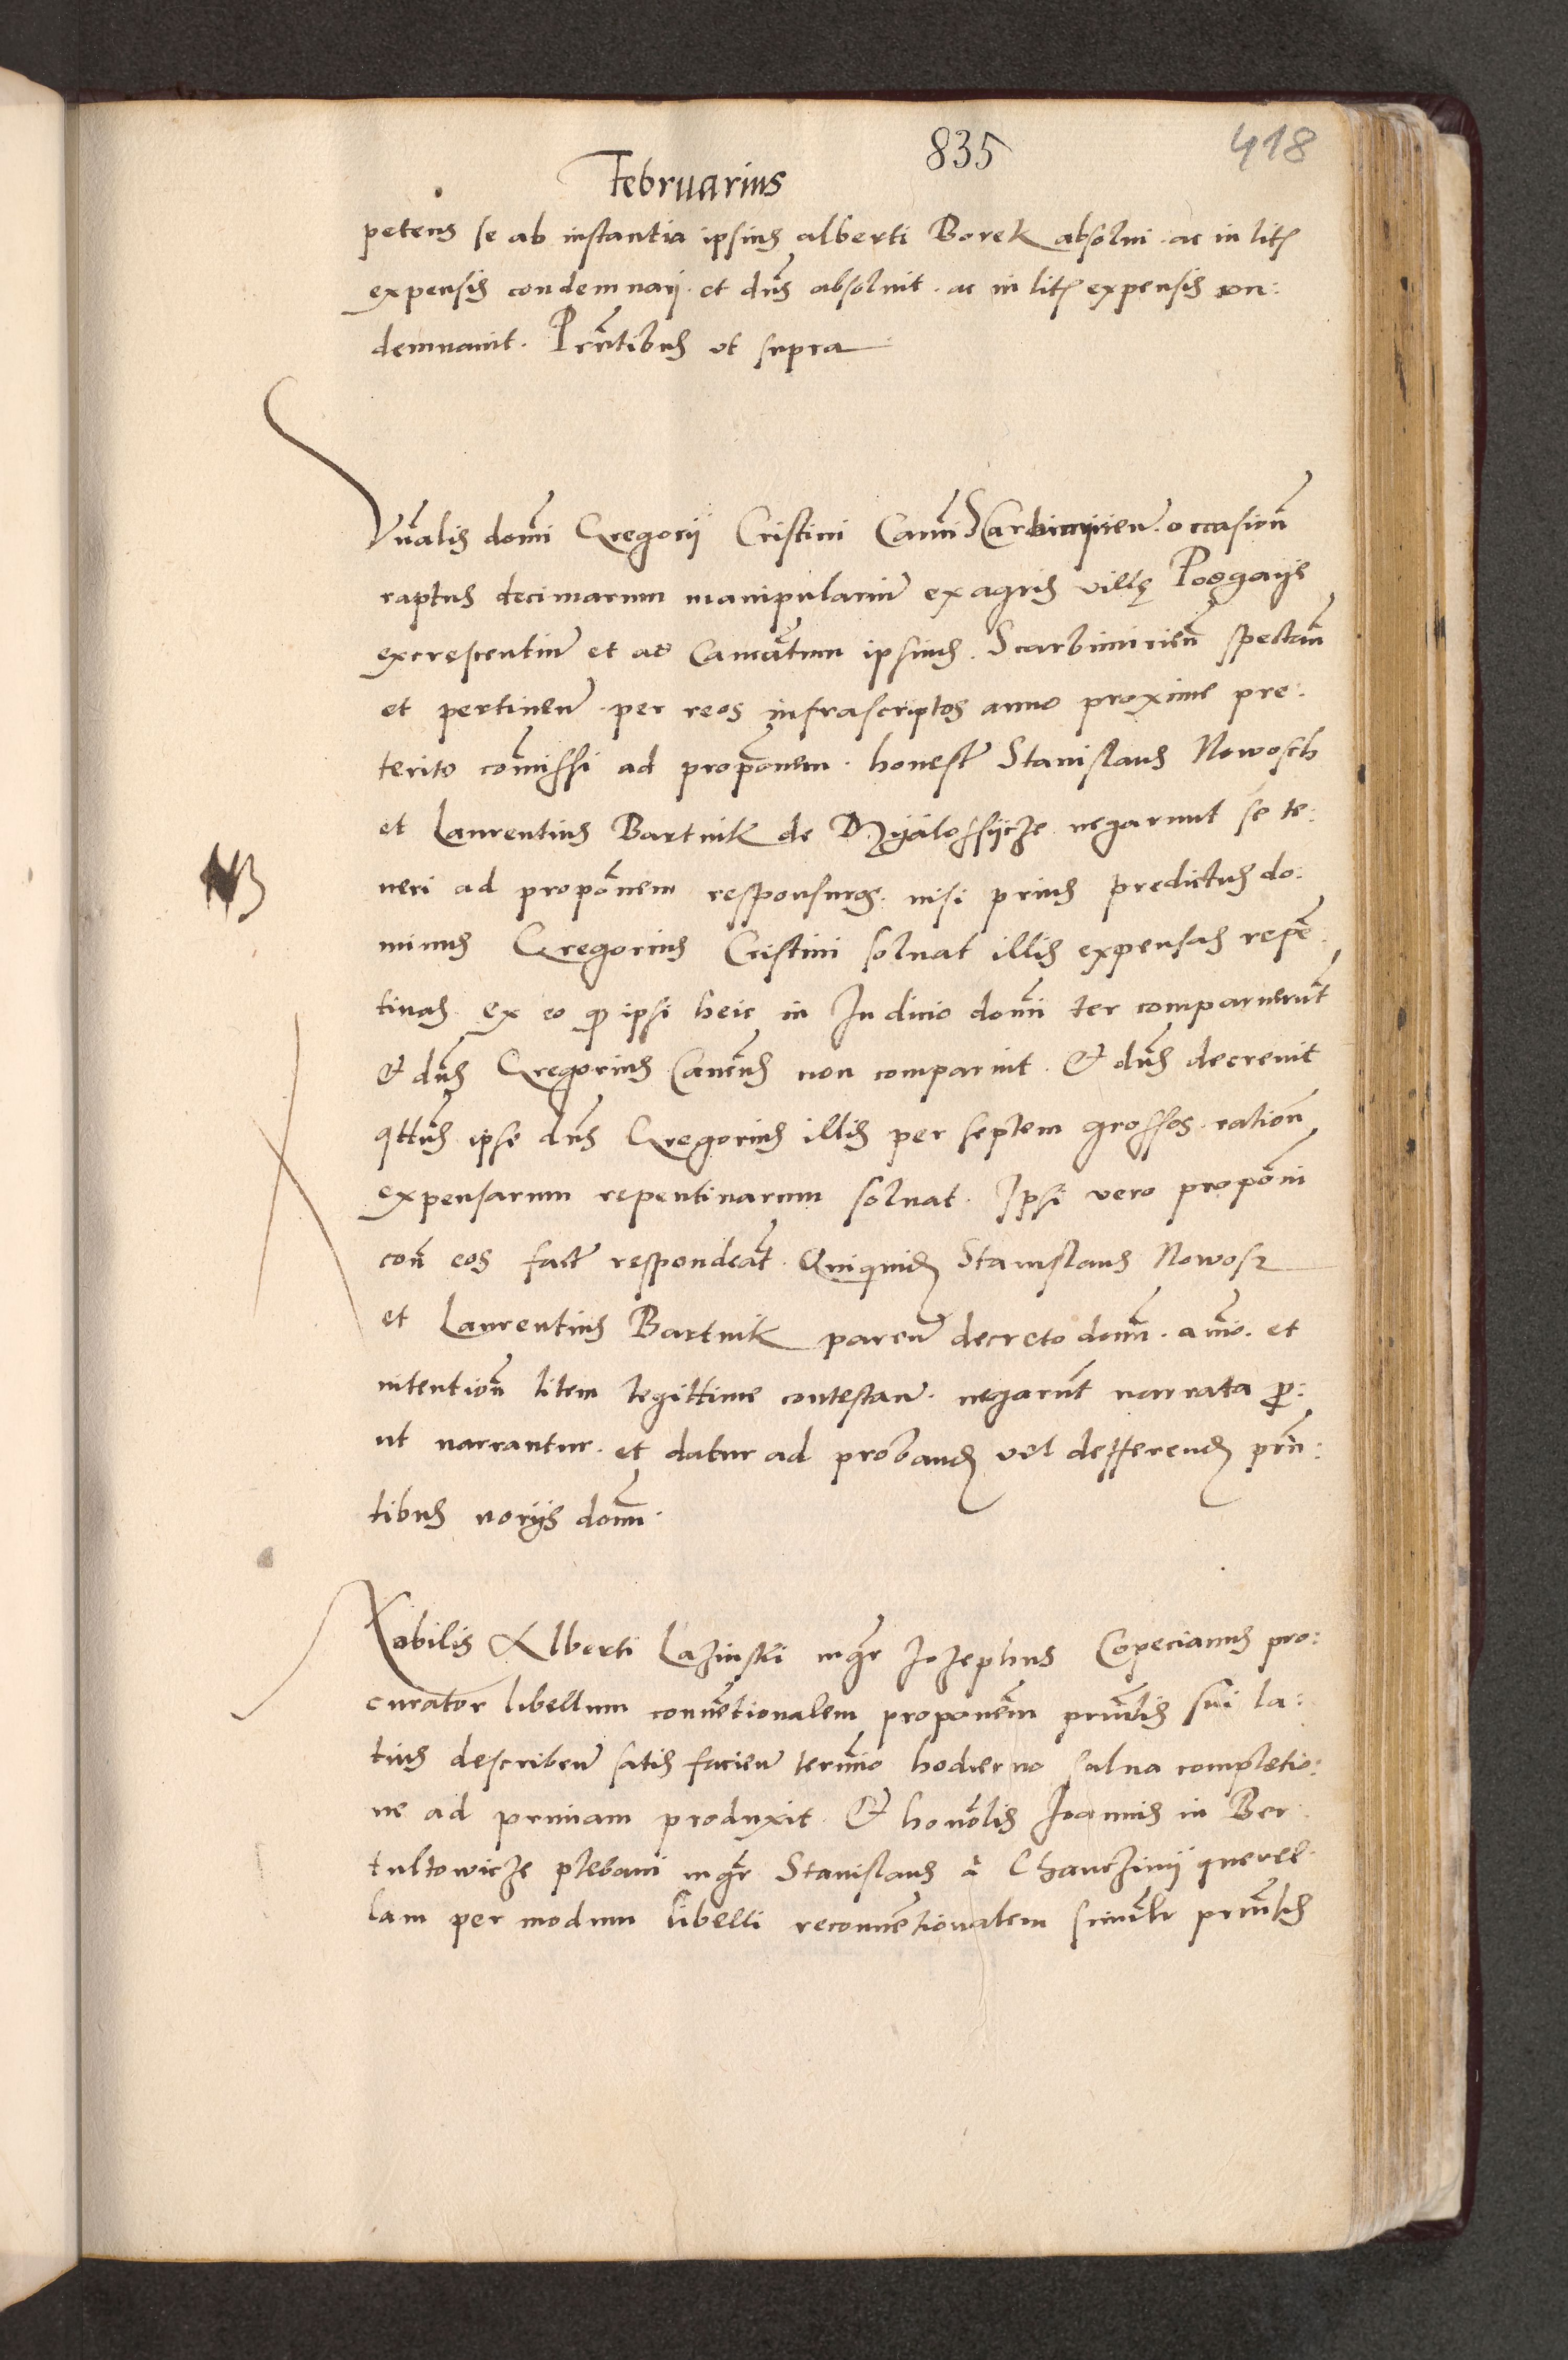 835
418
Februarius
petens se ab instantia ipsius alberti Borek absolvi. ac in lit(is)
expensis condemnari. et dn̄s absolvit. ac in lit(is) expensis con:
demnavit. Prn̄tibus ut supra
Vn̄alis domī Gregorij Cristini Canīci Scarbimirien̄. occasion̄
raptus decimarum manipulariū ex agris villę Poggaijs
excrescentiū et ad Canc̄atum ipsius. Scarbimirien̄ spectan̄
et pertinen̄. per reos infrascriptos anno proxime pre:
terito com̄issi ad propōnem. honest̄ Stanislaus Nowosch
et Laurentius Bartnik de Dzijaloschijcze negarunt se te:
neri ad propōnem responsuros. nisi prius predictus do:
minus Gregorius Cristini solvat illis expensas repē
tinas. ex eo q̄ ipsi heic in Iudicio domī ter comparuerūt
NB
& dn̄s Gregorius Canc̄us non comparuit. & dn̄s decrevit
qttn̄s ipse dn̄s Gregorius illis per septem grossos. ration̄
expensarum repentinarum solvat. Ipsi vero propōni
con̄ eos fact̄ respondeāt. Quiquid(em) Stanislaus Nowosz
et Laurentius Bartnik paren̄ decreto domī. animo. et
intention̄ litem legittime contestan̄. negarūt narrata p̄:
ut narrantur. et datur ad proband(um) vel defferend(um) prn̄:
tibus norijs domī.
Nobilis Alberti Lazinski mgr̄ Jozephus Copecianus pro:
curator libellum convētionalem propōnem prin̄lis sui la:
tius describen̄ satis facien̄ termīo hodierno salva completio:
ne ad primam produxit. & honorlis Joannis in Ber
tultowicze plebani mgr̄ Stanislaus à Chanczinij querel
lam per modum libelli reconvētionalem simīlr prin̄lis